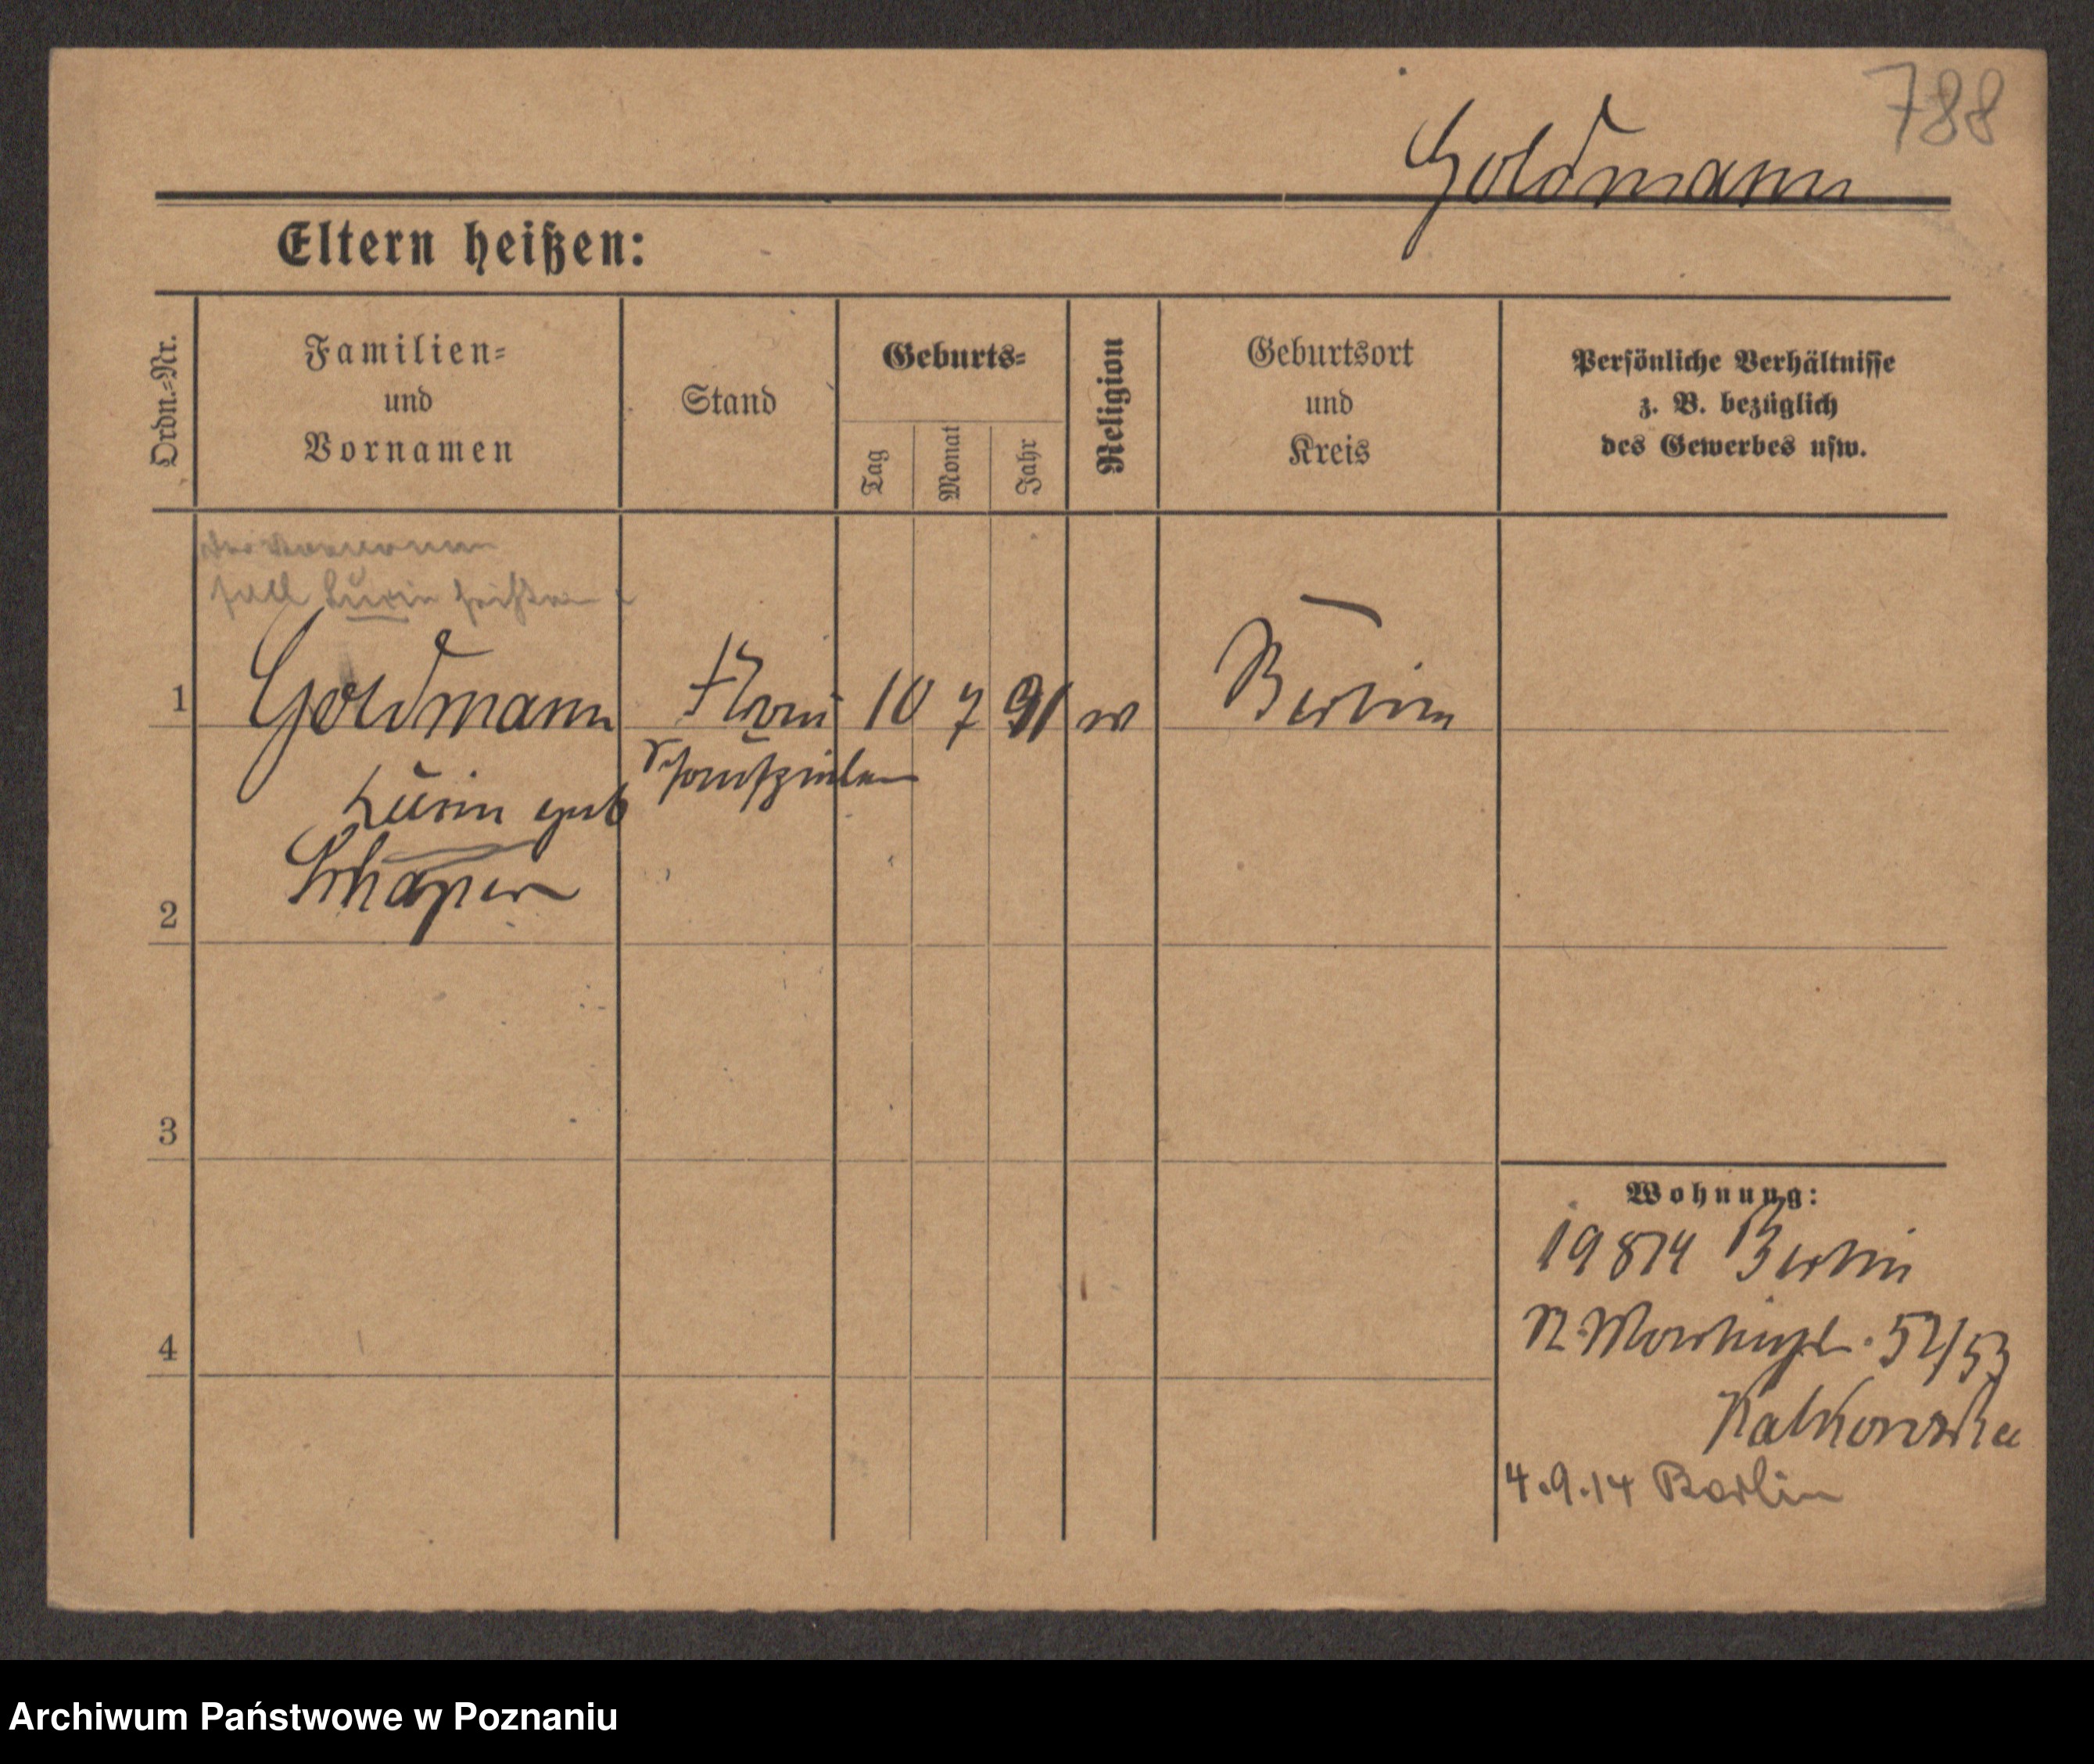 788
Goldmann
Eltern heißen:
Ordn.=Nr.
Familien=
und
Vornamen
Stand
Geburts=
Tag
Monat
Jahr
Religion
Geburtsort
und
Kreis
Persönliche Verhältnisse
z. B. bezüglich
des Gewerbes usw.
soll heißen
1
Goldmann
Frau
10
7
91
Berlin
geb
Schäper
2
3
4
Wohnung:
19 8 14 Berlin
52/53
4.9.14 Berlin
Archiwum Państwowe w Poznaniu